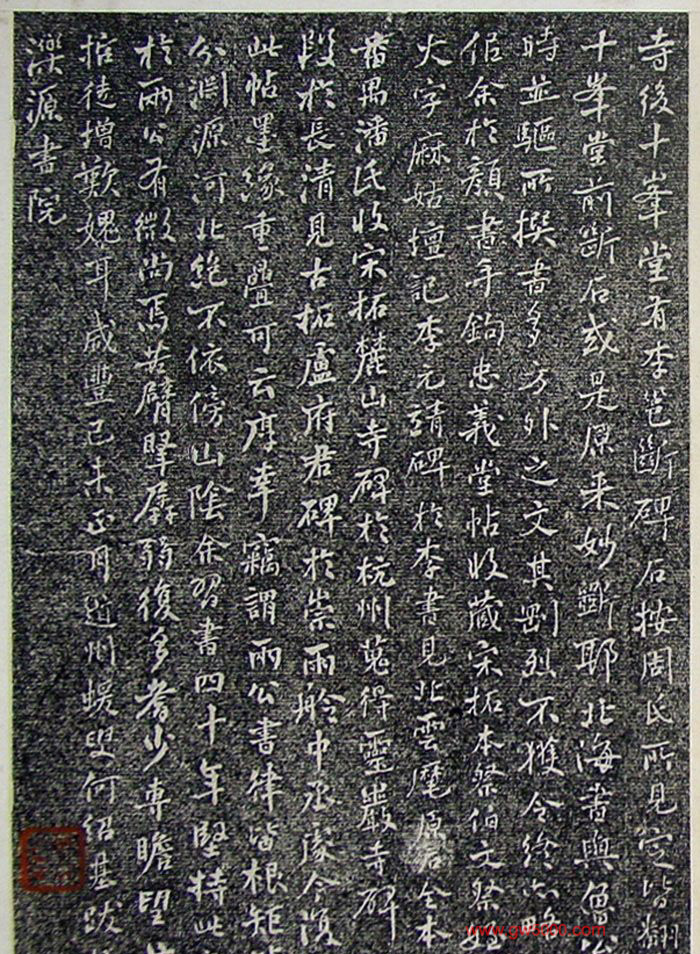 寺後十峯堂有李邕斷碑石按周氏所見定皆翻
十峯堂前斷石或是原來妙斷耶北海書與魯公
時並驅所撰書多方外之文其剛烈不獲令終亦略
佀余於顏書手鉤忠義堂帖收藏宋拓本祭伯文祭姪
大字麻姑壇記李元靖碑於李書見北雲麾原石全本
番禺潘氏收宋拓麓山寺碑於杭州蒐得靈巖寺碑
段於長清見古拓盧府君碑於崇雨舲中丞處今復
此帖墨緣重疊可云厚幸竊謂兩公書律皆根矩
公淵源河北絶不依傍山陰余習書四十年堅持此
於兩公有微尚焉苦臂腕孱弱復多耆少專瞻望
徒增歎媿耳咸豐己未正月道州蝯叟何紹基跋
濼源書院